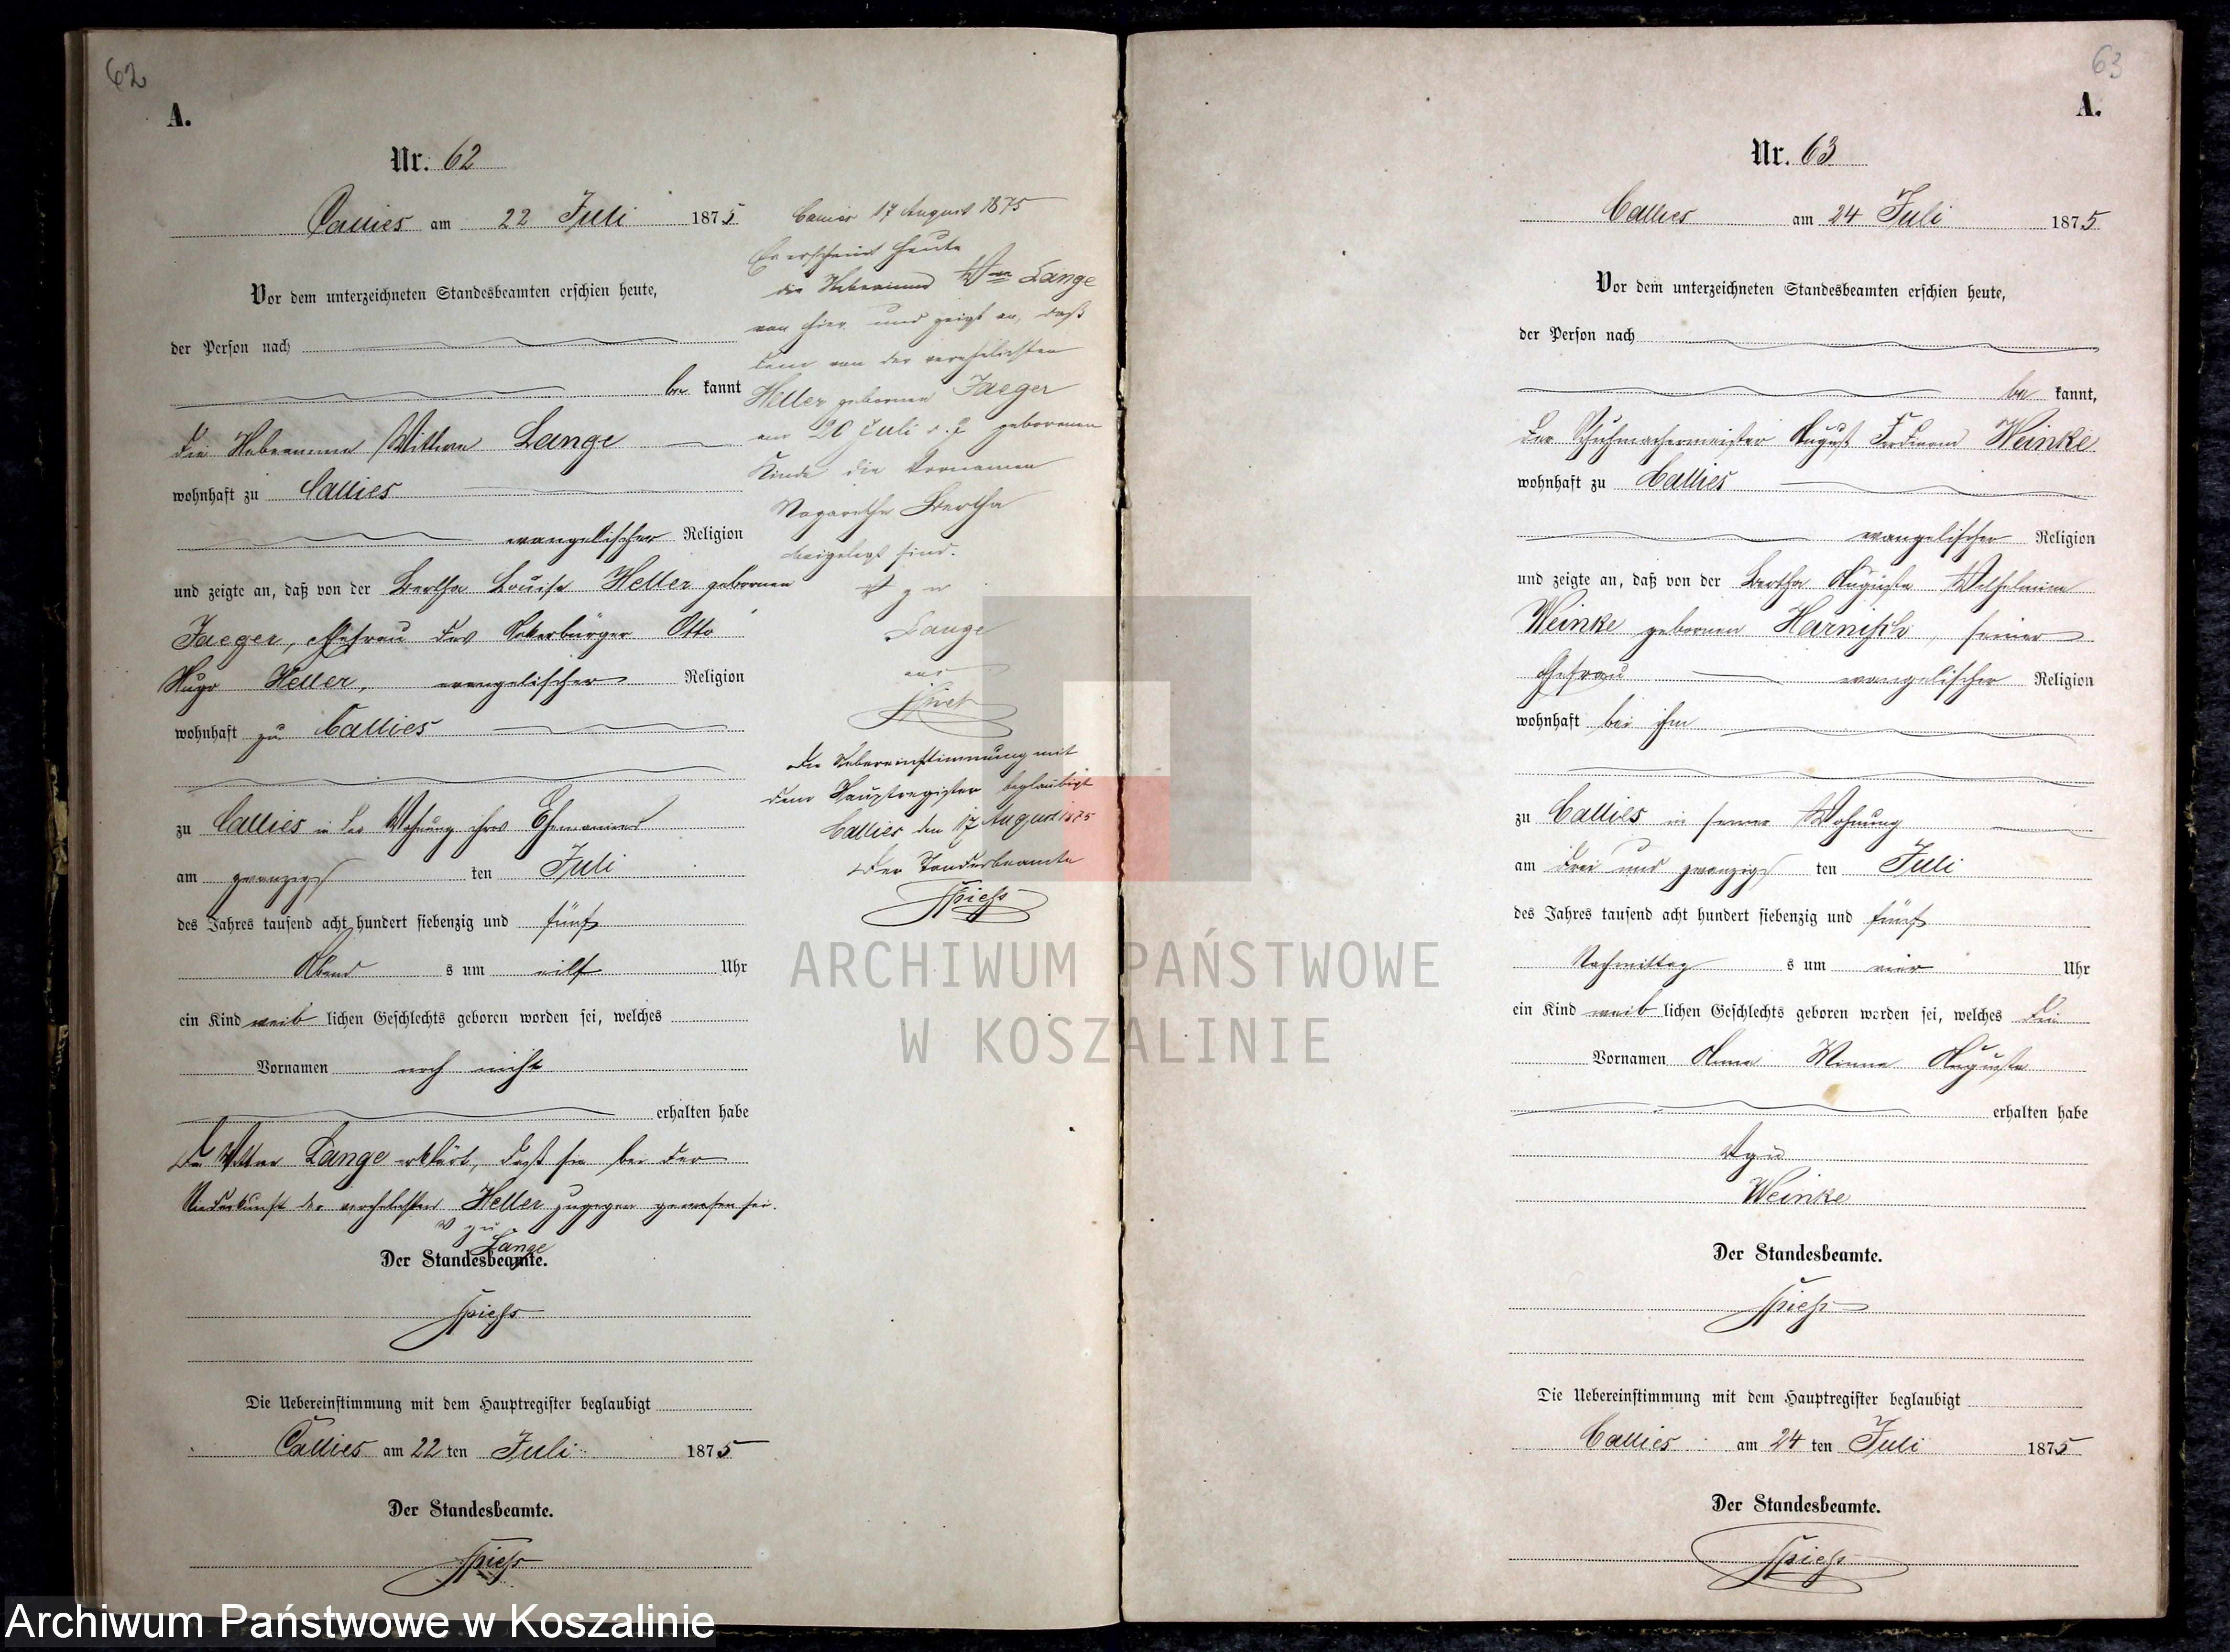 62
A.
Nr. 62
Callies am 22 Juli 1875
Vor dem unterzeichneten Standesbeamten erschien heute,
der Person nach
be kannt
die Hebamme Wittwe Lange
wohnhaft zu Callies
evangelischer Religion
und zeigte an, daß von der Bertha Louise Heller gebornen
Jaeger, Ehefrau des Ackerbürger Otto
Hugo Heller, evangelischer Religion
wohnhaft zu Callies
zu Callies in der Wohnung ihres Ehemannes
am zwanzigsten ten Juli
des Jahres tausend acht hundert siebenzig und fünf
Abend s um eilf Uhr
ein Kind weib lichen Geschlechts geboren worden sei, welches
Vornamen noch nicht
erhalten habe
Die Wittwe Lange erklärt, daß sie bei der
Niederkunft der verehelichten Heller zugegen gewesen sei.
v g u
Lange
Der Standesbeamte.
Spiess
Die Uebereinstimmung mit dem Hauptregister beglaubigt
Callies am 22 ten Juli 1875
Der Standesbeamte.
Spiess
Callies 17 August 1875
Es erscheint heute
die Hebamme Wwe Lange
von hier und zeigt an, daß
dem von der verehelichten
Heller gebornen Jaeger
am 20 Juli d. J. geborenen
Kinde die Vornamen
Margarethe Bertha
beigelegt sind.
v g u
Lange
Spiess
Die Uebereinstimmung mit
dem Hauptregister beglaubigt
Callies den 17 August 1875
Der Standesbeamte
Spiess
63
A.
Nr. 63
Callies am 24 Juli 1875
Vor dem unterzeichneten Standesbeamten erschien heute,
der Person nach
be kannt,
der Schuhmachermeister August Ferdinand Weinke
wohnhaft zu Callies
evangelischer Religion
und zeigte an, daß von der Bertha Auguste Wilhelmine
Weinke gebornen Harnisch, seiner
Ehefrau evangelischer Religion
wohnhaft bei ihm
zu Callies in seiner Wohnung
am drei und zwanzigsten ten Juli
des Jahres tausend acht hundert siebenzig und fünf
Nachmittag s um vier Uhr
ein Kind weib lichen Geschlechts geboren worden sei, welches die
Vornamen Anna Minna Auguste
erhalten habe
v g u
Weinke
Der Standesbeamte.
Spiess
Die Uebereinstimmung mit dem Hauptregister beglaubigt
Callies am 24 ten Juli 1875
Der Standesbeamte.
Spiess
ARCHIWUM PAŃSTWOWE
W KOSZALINIE
Archiwum Państwowe w Koszalinie